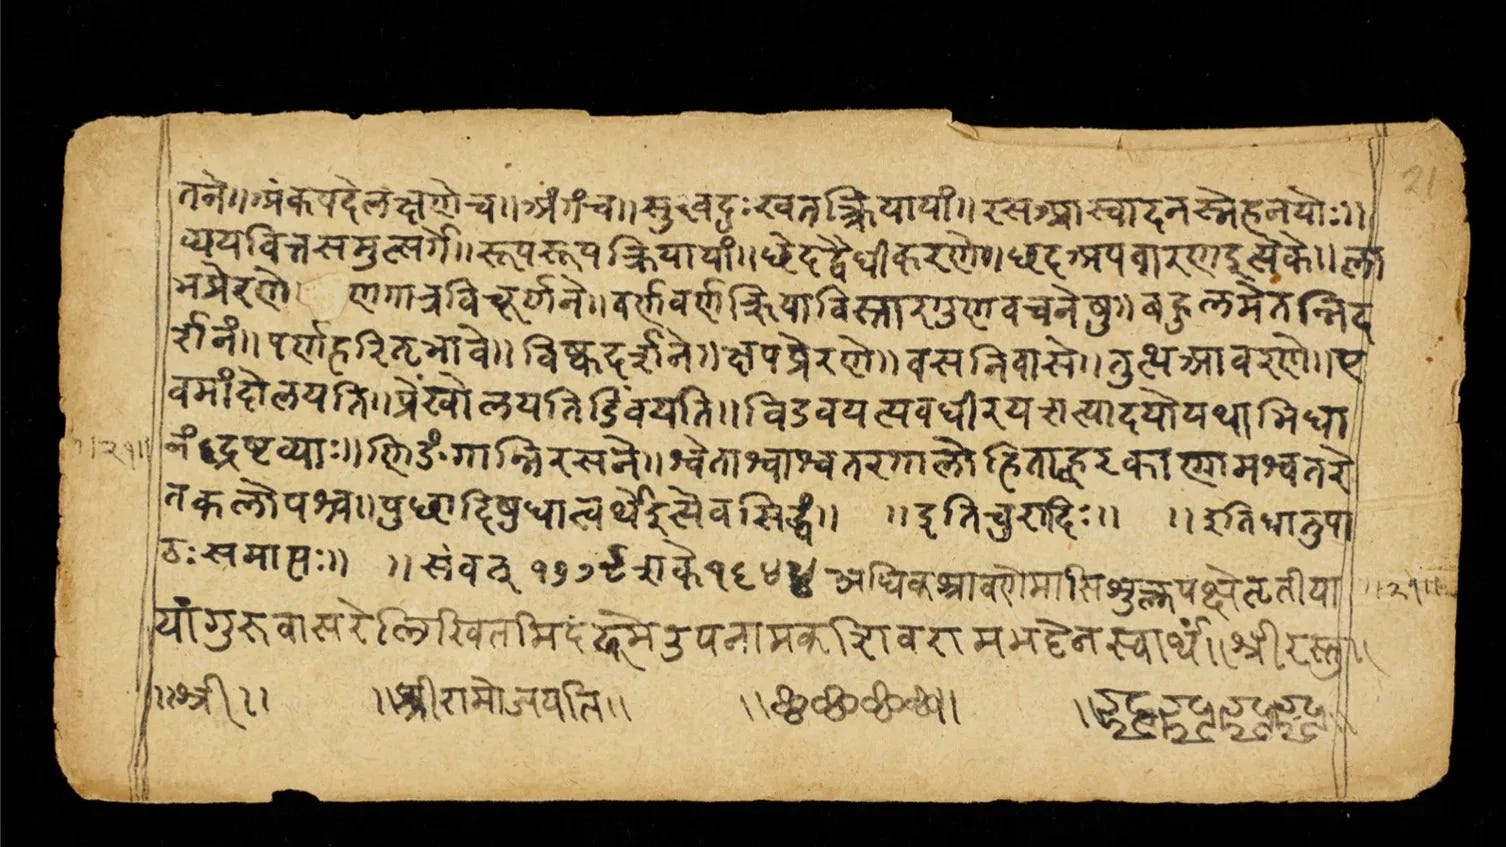 तने॥अंकपदेलक्षणेच॥अंगंच॥सुखदुःखतत्क्रियायां॥रसआस्वादनस्नेहनयोः॥
व्ययवित्तसमुत्सर्गे॥रूपरूपक्रियायां॥छेदद्वैधीकरणे॥छदअपवारणइत्येके॥ला
भप्रेरणे॥ व्रणगात्रविचूर्णने॥वर्णवर्णक्रियाविस्तारगुणवचनेषु॥बहुलमेतन्निद
र्शनं॥पर्णहरितभावे॥विष्कदर्शने॥क्षपप्रेरणे॥वसनिवासे॥तुत्थआवरणे॥ए
वमांदोलयति॥प्रेंखोलयतिडिंबयति॥विडंबयत्यवधीरयतीत्यादयोयथाभिधा
नंद्रष्टव्याः॥णिङंगान्निरसने॥श्वेताश्वाश्वतरगालोहिताह्वरकाणामश्वतरे
तकलोपश्च॥पुछादिषुधात्वर्थइत्येवसिद्धं॥ ॥इतिचुरादिः॥ ॥इतिधातुपा
ठःसमाप्तः॥ ॥संवत् १७७९शके१६४४अधिकश्रावणेमासिशुक्लपक्षेतृतीया
यांगुरुवासरेलिखितमिदं उपनामक रामभट्टेनस्वार्थं॥श्रीरस्तु॥
॥श्री॥ ॥श्रीरामोजयति॥ ॥छ॥
॥२१॥
॥२१॥
21